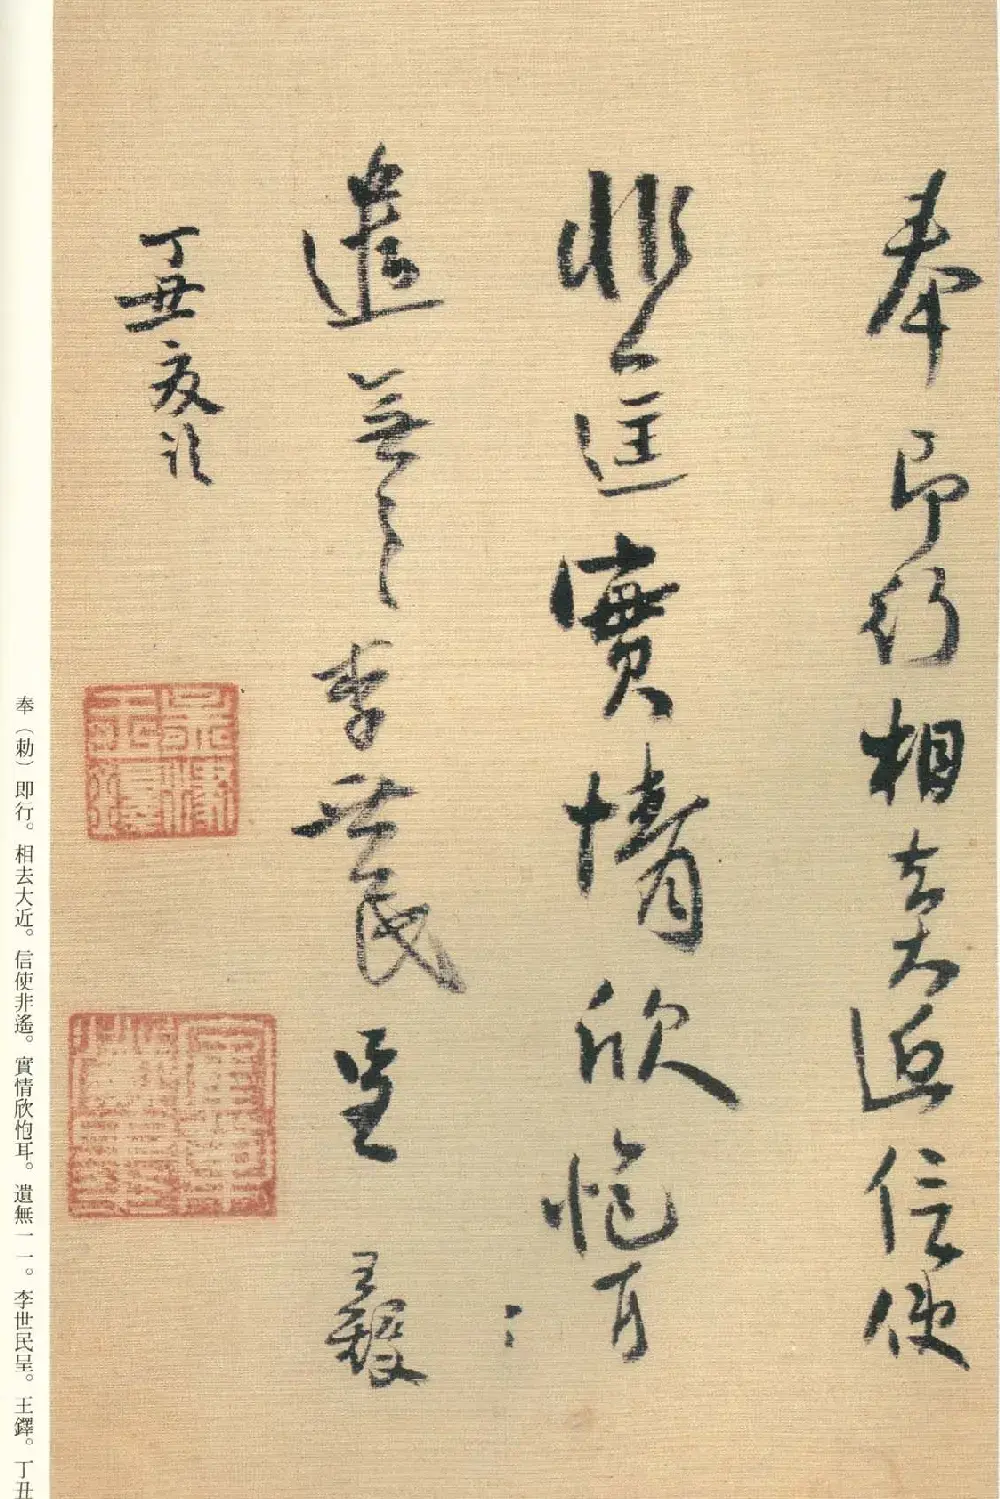 奉即行相去大近信使
非遙實情欣怉耳
遣無一一李世民呈 王鐸
丁丑夜
奉（勅）即行。相去大近。信使非遙。實情欣怉耳。遺無一一。李世民呈。王鐸。丁丑